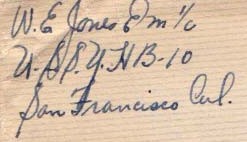 W. E Jones Em 1/c
U.S.S. U.H B-10
San Francisco Cal.